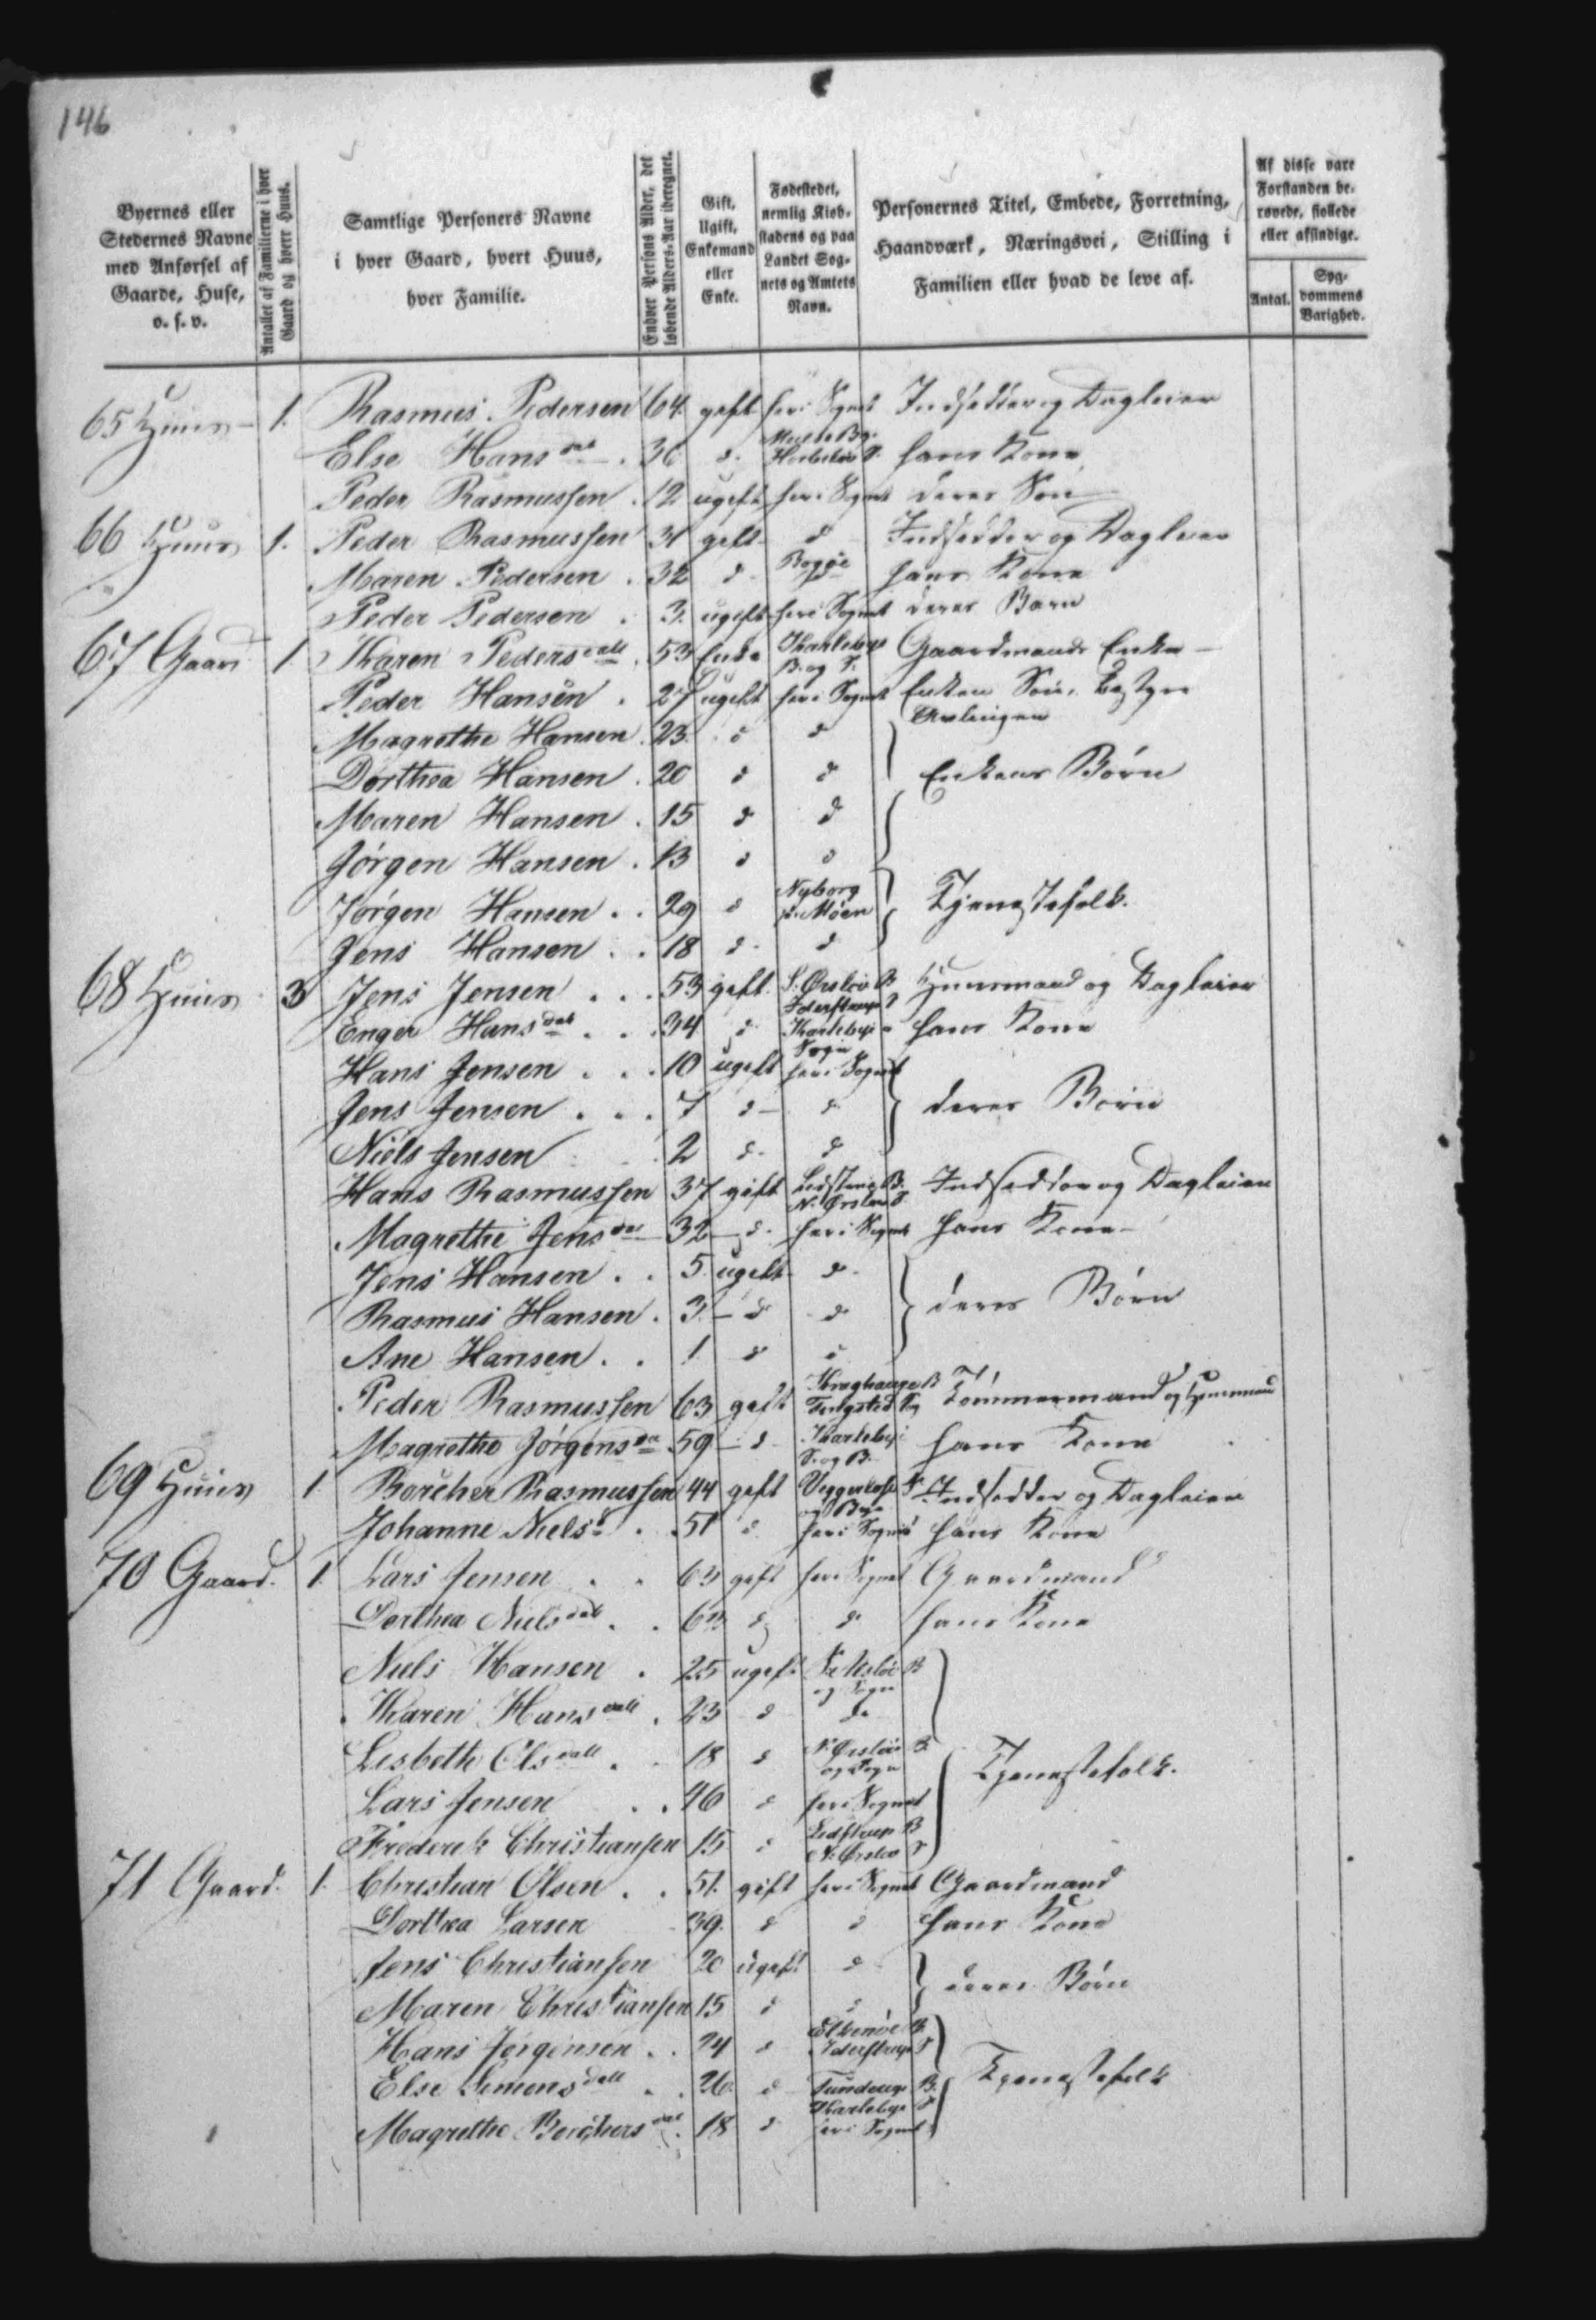 146
Byernes eller Stedernes Navne med Anførsel af Gaarde, Huse, o. s. v.
Antallet af Familierne i hver Gaard og hvert Huus.
Samtlige Personers Navne i hver Gaard, hvert Huus, hver Familie.
Enhver Persons Alder, det løbende Alders-Aar iberegnet.
Gift, Ugift, Enkemand eller Enke.
Fødestedet, nemlig Kiøbstadens og paa Landet Sognets og Amtets Navn.
Personernes Titel, Embede, Forretning, Haandværk, Næringsvei, Stilling i Familien eller hvad de leve af.
Af disse vare Forstanden berøvede, fiollede eller afsindige.
Antal.
Sygdommens Varighed.
65 Huus 1. Rasmus Pedersen 64 gift her i Sognet Indsidder og Dagleier
Else Hansdat 36 d. hans Kone
Peder Rasmussen 12 ugift her i Sognet deres Søn
66 Huus 1. Peder Rasmussen 31 gift d Indsidder og Dagleier
Maren Pedersen 32 d Bogøe hans Kone
Peder Pedersen 3. ugift her i Sognet deres Barn
67 Gaard 1 Karen Pedersdatt 53 Enke Karlebye B. og S. Gaardmands Enke
Peder Hansen 27 ugift her i Sognet Enkens Søn, bestyrer Avlingen
Magrethe Hansen 23. d d
Dorthea Hansen 20 d d Enkens Børn
Maren Hansen 15 d d
Jørgen Hansen 13 d d
Jørgen Hansen 29 d Nyborg p. Møen Tjenestefolk.
Jens Hansen 18 d d
68 Huus 3 Jens Jensen 53 gift S. Ørslev B Idestrup S Huusmand og Dagleier
Enger Hansdat 34 d Karlebye Sogn hans Kone
Hans Jensen 10 ugift her i Sognet
Jens Jensen 7 d d deres Børn
Niels Jensen 2 d d
Hans Rasmussen 37 gift N. Ørslev S. Indsidder og Dagleier
Magrethe Jensdat 32 d. her i Sognet hans Kone
Jens Hansen 5 ugift d
Rasmus Hansen 3. d d deres Børn
Ane Hansen 1 d d
Peder Rasmussen 63 gift Kraghauge B Tingsted S Tømmermand og Huusmand
Magrethe Jørgensda 59 d Karlebye S. og B. hans Kone
69 Huus 1 Borcher Rasmussen 44 gift Veggerløse S og Bye Indsidder og Dagleier
Johanne Nielsd 51 d her i Sognet hans Kone
70 Gaard. 1. Lars Jensen 63 gift her i Sognet Gaardmand
Dorthea Nielsdat 63 d d hans Kone
Niels Hansen 25 ugift B og Sogn
Karen Hansdatt 23 d do
Lisbeth Olsdatt 18 d N. Ørslev B. og Sogn Tjenestefolk.
Lars Jensen 46 d her i Sognet
Frederik Christiansen 15 d Lidstrup B N. Ørslev S
71 Gaard. 1. Christian Olsen 51. gift her i Sognet Gaardmand
Dorthea Larsen 39. d d hans Kone
Jens Christiansen 20 ugift d deres Børn
Maren Christiansen 15 d d
Hans Jørgensen 24 d Elkenøe B. Idestrup S
Else Simensdatt 26. d Tunderup B. Karlebye S Tjenestefolk
Magrethe Borchersdat 18 d her i Sognet